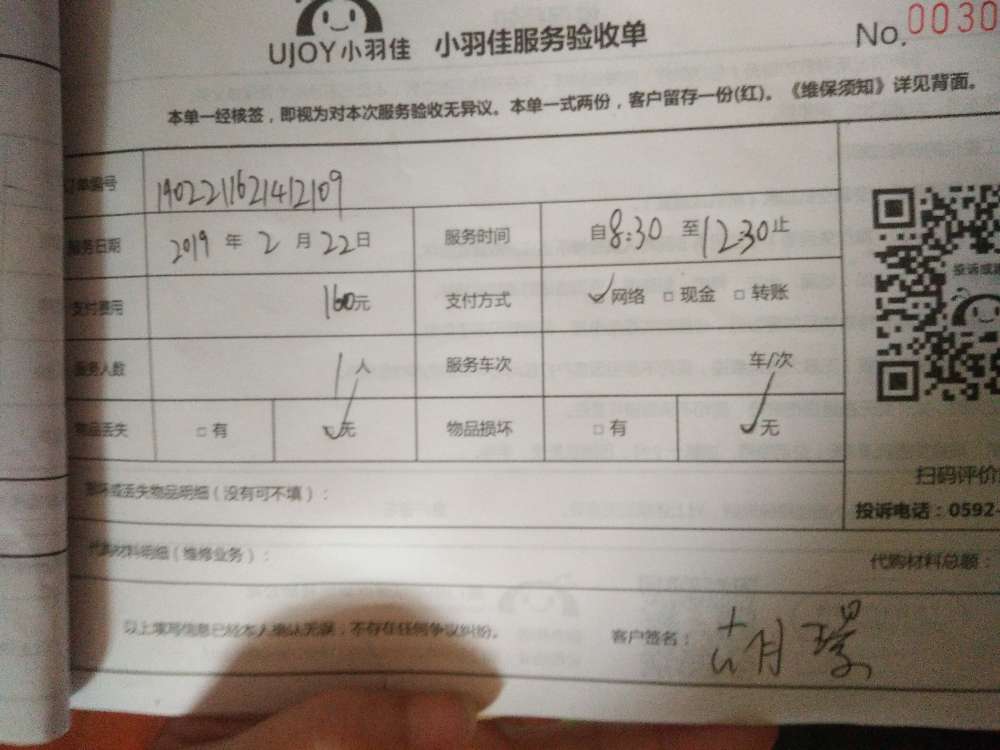 UJOY小羽佳 小羽佳服务验收单 No.0030
本单一经核签，即视为对本次服务验收无异议。本单一式两份，客户留存一份(红)。《维保须知》详见背面。
订单编号 1902211621412109
服务日期 2019 年 2 月 22 日 服务时间 自8:30 至12:30止
支付费用 160元 支付方式 ✓网络 □现金 □转账
服务人数 1人 服务车次 车/次
物品丢失 □有 ✓无 物品损坏 □有 ✓无
损坏或丢失物品明细（没有可不填）：
代购材料明细（维修业务）： 代购材料总额：
扫码评价
投诉电话：0592-
以上填写信息已经本人确认无误，不存在任何争议纠纷。 客户签名：